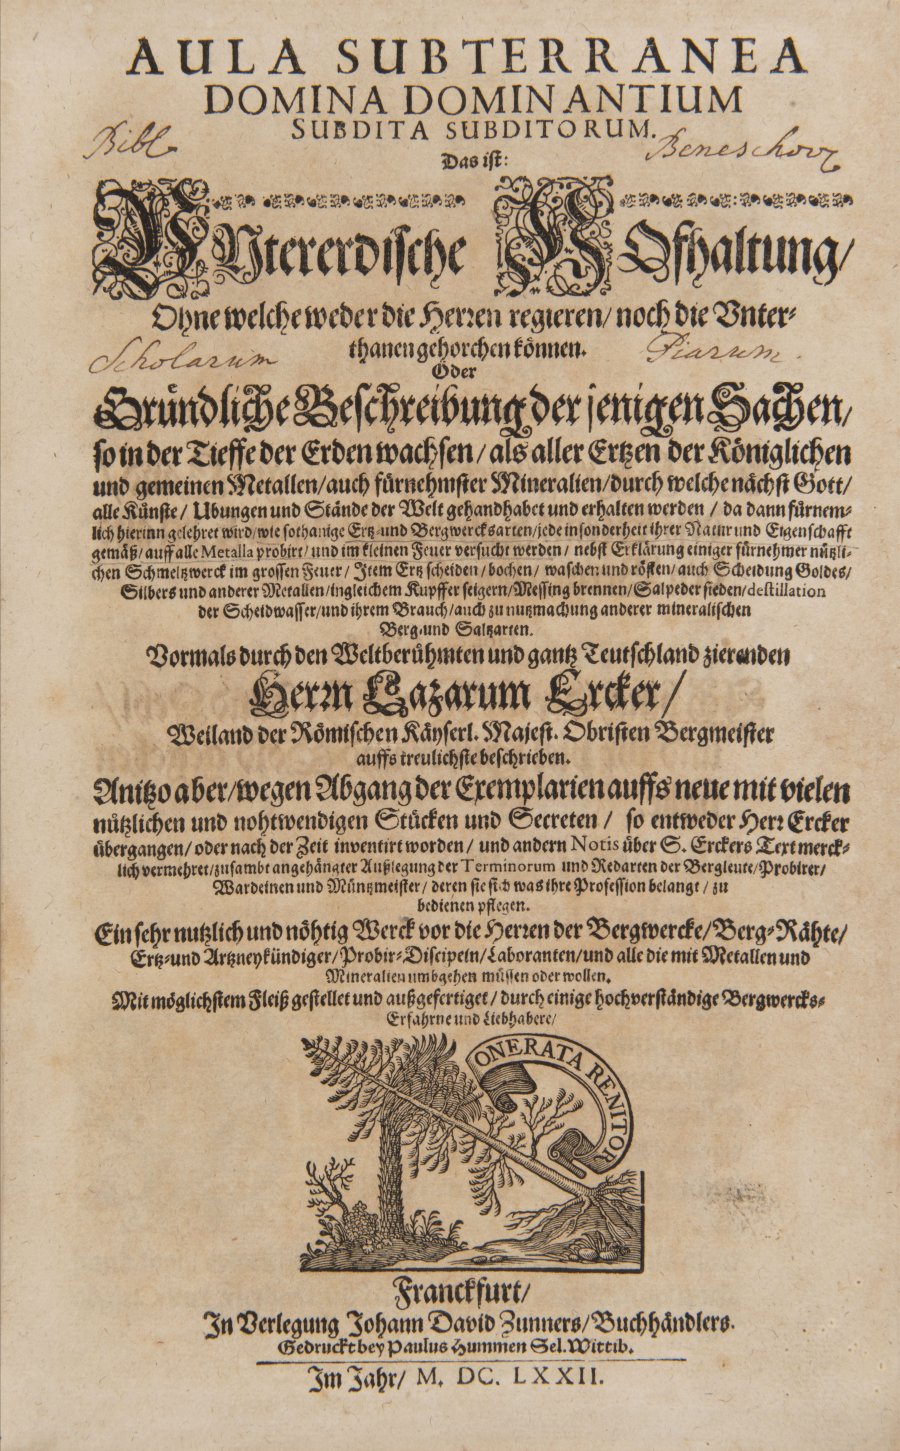 AULA SUBTERRANEA
DOMINA DOMINANTIUM
SUBDITA SUBDITORUM.
Bibl. Beneschov
Das ist:
Untererdische Hofhaltung/
Ohne welche weder die Herren regieren/ noch die Vnter-
thanen gehorchen können.
Scholarum Piarum.
Oder
Gründliche Beschreibung der jenigen Sachen/
so in der Tieffe der Erden wachsen/ als aller Ertzen der Königlichen
und gemeinen Metallen/ auch fürnehmster Mineralien/ durch welche nächst Gott/
alle Künste/ Ubungen und Stände der Welt gehandhabet und erhalten werden/ da dann fürnem-
lich hierinn gelehret wird/ wie sothanige Ertz-und Bergwercksarten/ jede insonderheit ihrer Natur und Eigenschafft
gemäß/ auff alle Metalla probirt/ und im kleinen Feuer versucht werden/ nebst Erklärung einiger fürnehmer nützli-
chen Schmeltzwerck im grossen Feuer/ Item Ertz scheiden/ bochen/ waschen und rösten/ auch Scheidung Goldes/
Silbers und anderer Metallen/ ingleichem Kupffer seigern/ Messing brennen/ Salpeder sieden/ destillation
der Scheidwasser/ und ihrem Brauch/ auch zu nutzmachung anderer mineralischen
Berg-und Saltzarten.
Vormals durch den Weltberühmten und gantz Teutschland zierenden
Herrn Lazarum Ercker/
Weiland der Römischen Käyserl. Majest. Obristen Bergmeister
auffs treulichste beschrieben.
Anitzo aber/ wegen Abgang der Exemplarien auffs neue mit vielen
nützlichen und nohtwendigen Stücken und Secreten/ so entweder Herr Ercker
übergangen/ oder nach der Zeit inventirt worden/ und andern Notis über S. Erckers Text merck-
lich vermehret/ zusambt angehängter Außlegung der Terminorum und Redarten der Bergleute/ Probirer/
Wardeinen und Müntzmeister/ deren sie sich was ihre Profession belangt/ zu
bedienen pflegen.
Ein sehr nutzlich und nöhtig Werck vor die Herren der Bergwercke/ Berg-Rähte/
Ertz-und Artzneykündiger/ Probir-Discipeln/ Laboranten/ und alle die mit Metallen und
Mineralien umbgehen müssen oder wollen.
Mit möglichstem Fleiß gestellet und außgefertiget/ durch einige hochverständige Bergwercks-
Erfahrne und Liebhabere/
ONERATA RENITOR
Franckfurt/
In Verlegung Johann David Zunners/ Buchhändlers.
Gedruckt bey Paulus Hummen Sel. Wittib.
Im Jahr/ M. DC. LXXII.